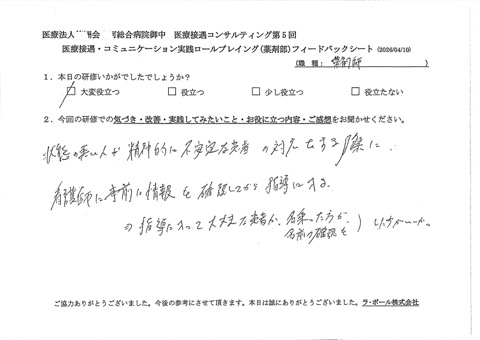 医療法人 会 総合病院御中 医療接遇コンサルティング第5回
医療接遇・コミュニケーション実践ロールプレイング(薬剤部)フィードバックシート (2026/04/10)
(職 種: 薬剤師 )
1.本日の研修いかがでしたでしょうか?
大変役立つ 役立つ 少し役立つ 役立たない
2.今回の研修での気づき・改善・実践してみたいこと・お役に立つ内容・ご感想をお聞かせください。
状態の悪い人や精神的に不安定な患者の対応をする際に、
看護師に事前に情報を確認してから指導に入る。
⇒指導に入って大丈夫な患者か、名乗った方が、
名前の確認を
ご協力ありがとうございました。今後の参考にさせて頂きます。本日は誠にありがとうございました。ラ・ポール株式会社